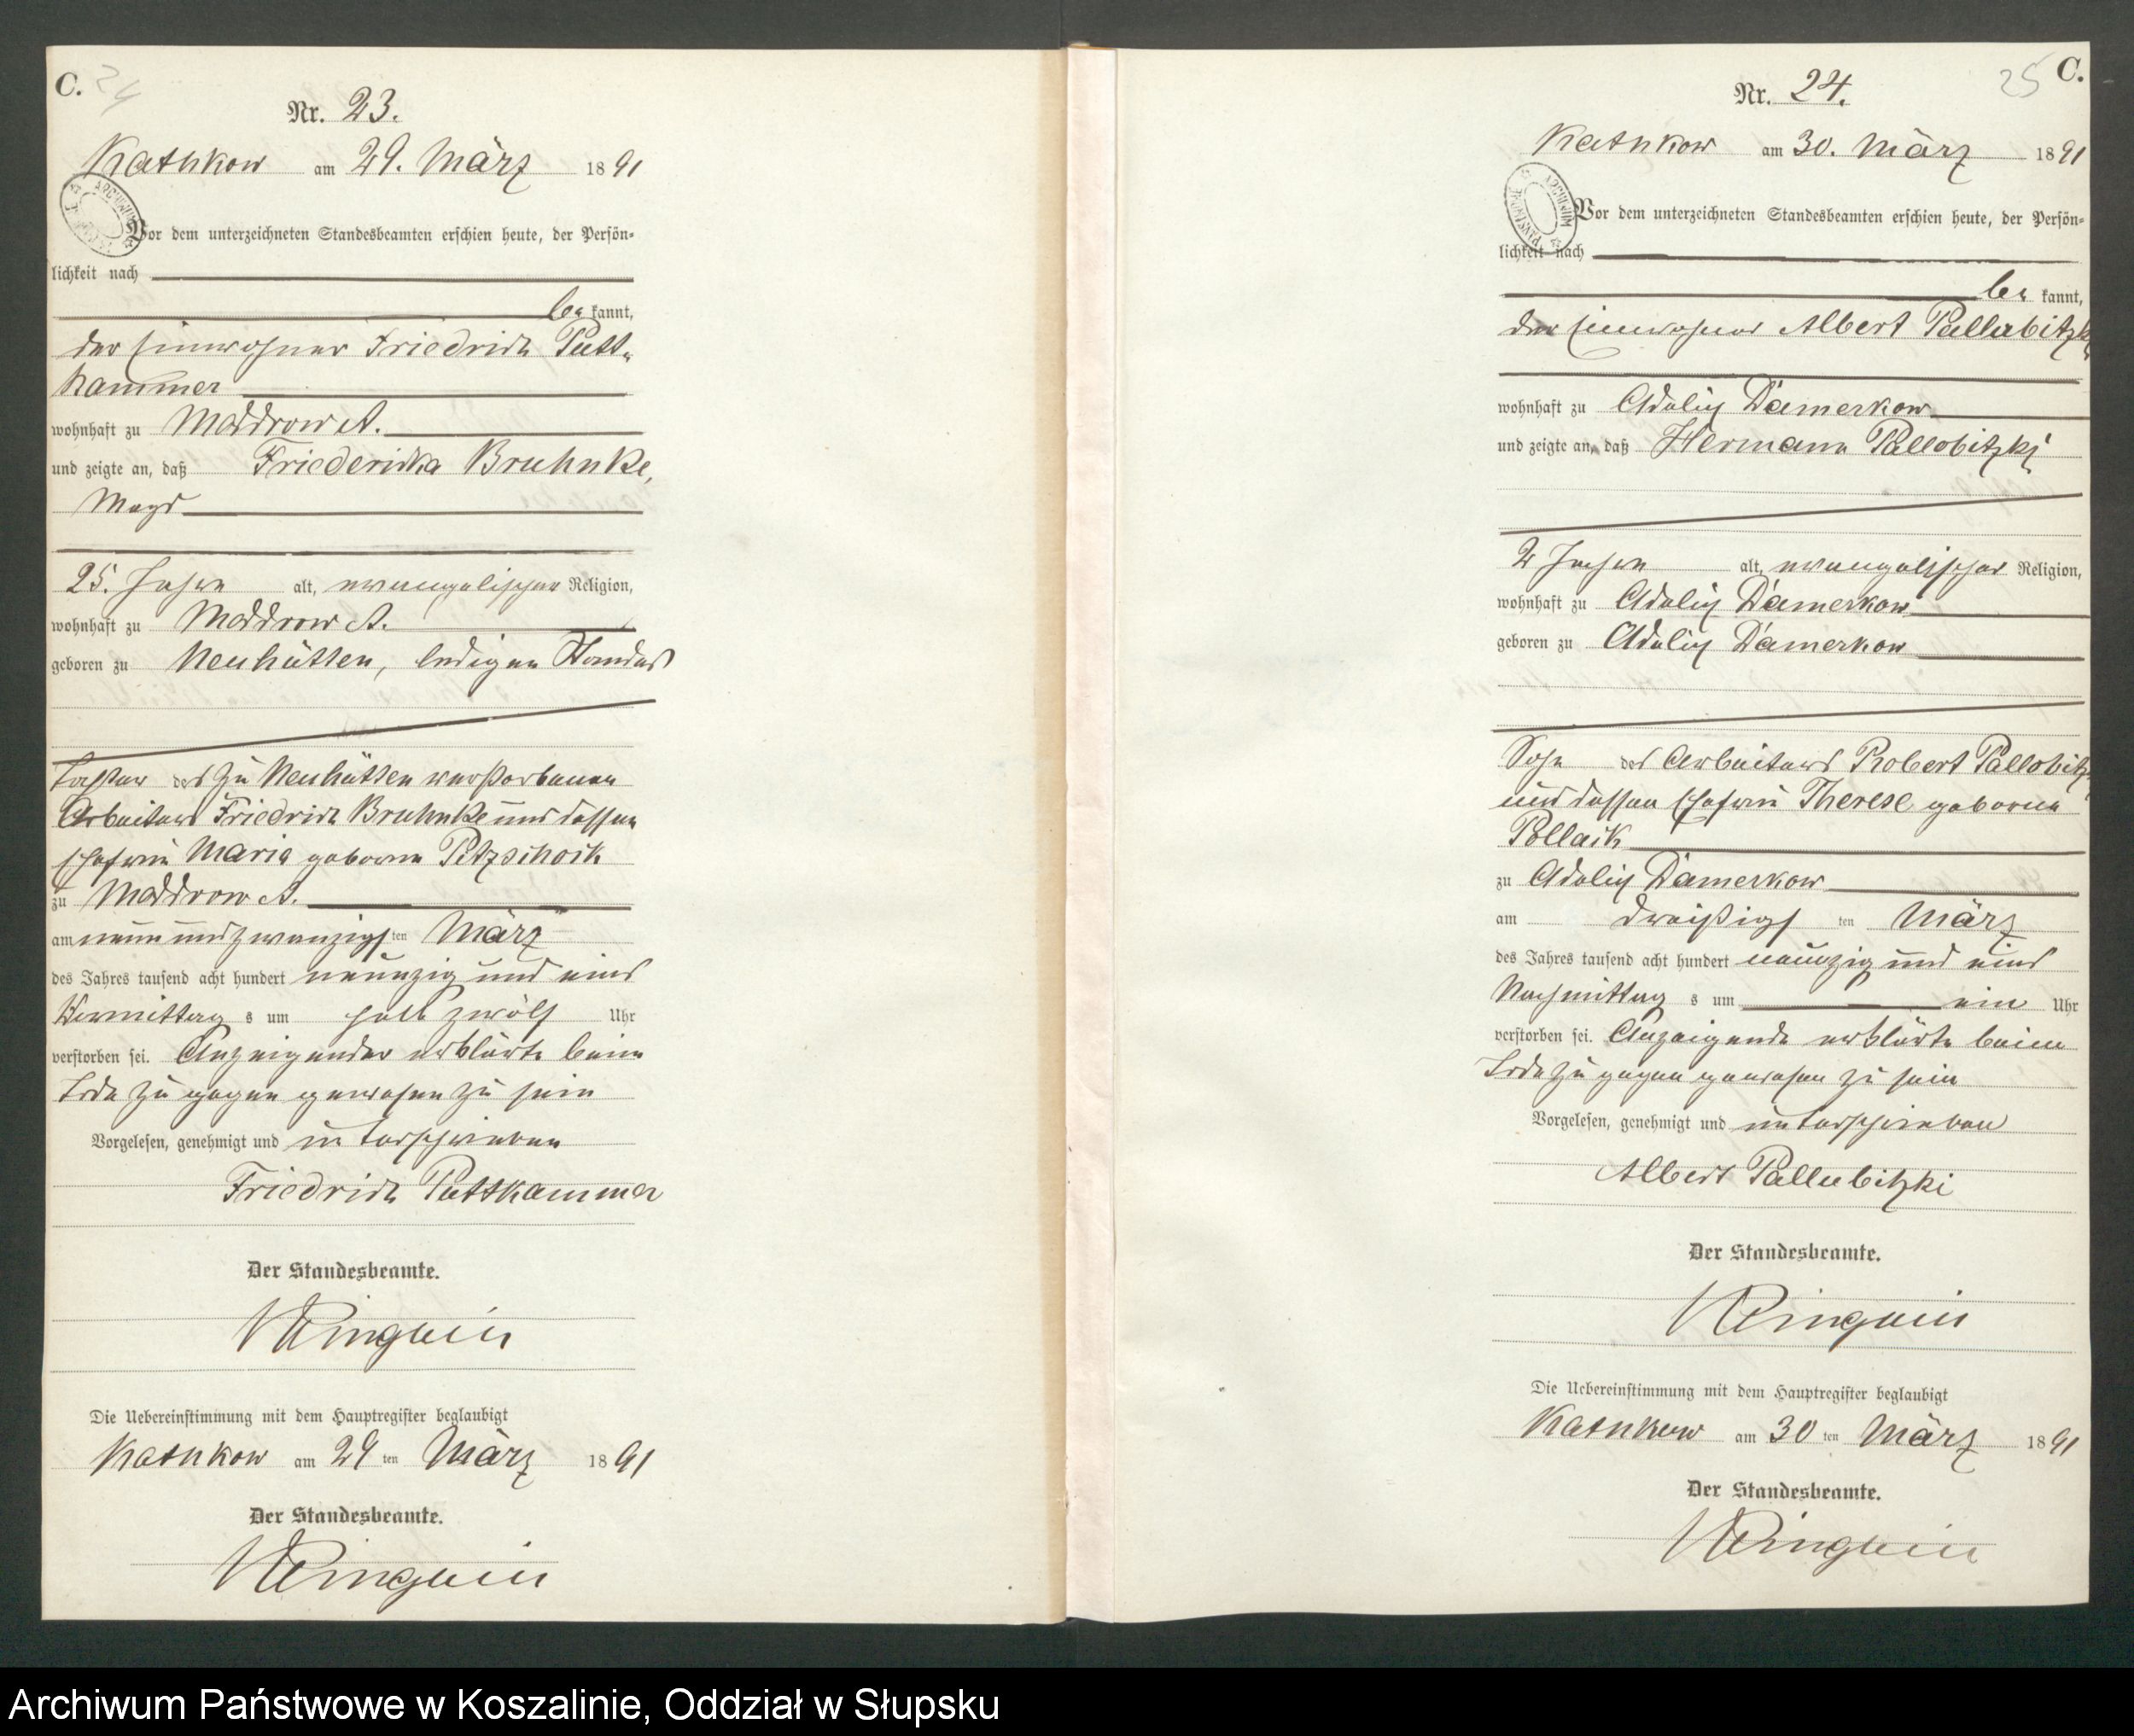 C. 24
Nr. 23.
Kathkow am 29. März 1891
Vor dem unterzeichneten Standesbeamten erschien heute, der Persön-
lichkeit nach
be kannt,
der Einwohner Friedrich Putt-
kammer
wohnhaft zu Moddrow A.
und zeigte an, daß Friedericka Bruhnke,
Magd
25. Jahre alt, evangelischer Religion,
wohnhaft zu Moddrow A.
geboren zu Neuhütten, ledigen Standes
Tochter des zu Neuhütten verstorbenen
Arbeiters Friedrich Bruhnke und dessen
Ehefrau Maria geborne Petzschock
zu Moddrow A.
am neun und zwanzigs ten März
des Jahres tausend acht hundert neunzig und eins
Vormittag s um halb zwölf Uhr
verstorben sei. Anzeigender erklärte beim
Tode zu gegen gewesen zu sein
Vorgelesen, genehmigt und unterschrieben
Friedrich Puttkammer
Der Standesbeamte.
Die Uebereinstimmung mit dem Hauptregister beglaubigt
Kathkow am 29 ten März 1891
Der Standesbeamte.
25 C.
Nr. 24.
Kathkow am 30. März 1891
Vor dem unterzeichneten Standesbeamten erschien heute, der Persön-
lichkeit nach
be kannt,
der Einwohner Albert Pallubitzki
wohnhaft zu Adelig Damerkow
und zeigte an, daß Hermann Pallobitzki
2 Jahre alt, evangelischer Religion,
wohnhaft zu Adelig Damerkow
geboren zu Adelig Damerkow
Sohn des Arbeiters Robert Pallobitzki
und dessen Ehefrau Therese geborne
Pollack
zu Adelig Damerkow
am dreißigs ten März
des Jahres tausend acht hundert neunzig und eins
Nachmittag s um ein Uhr
verstorben sei. Anzeigende erklärte beim
Tode zu gegen gewesen zu sein
Vorgelesen, genehmigt und unterschrieben
Albert Pallubitzki
Der Standesbeamte.
Die Uebereinstimmung mit dem Hauptregister beglaubigt
Kathkow am 30 ten März 1891
Der Standesbeamte.
Archiwum Państwowe w Koszalinie, Oddział w Słupsku